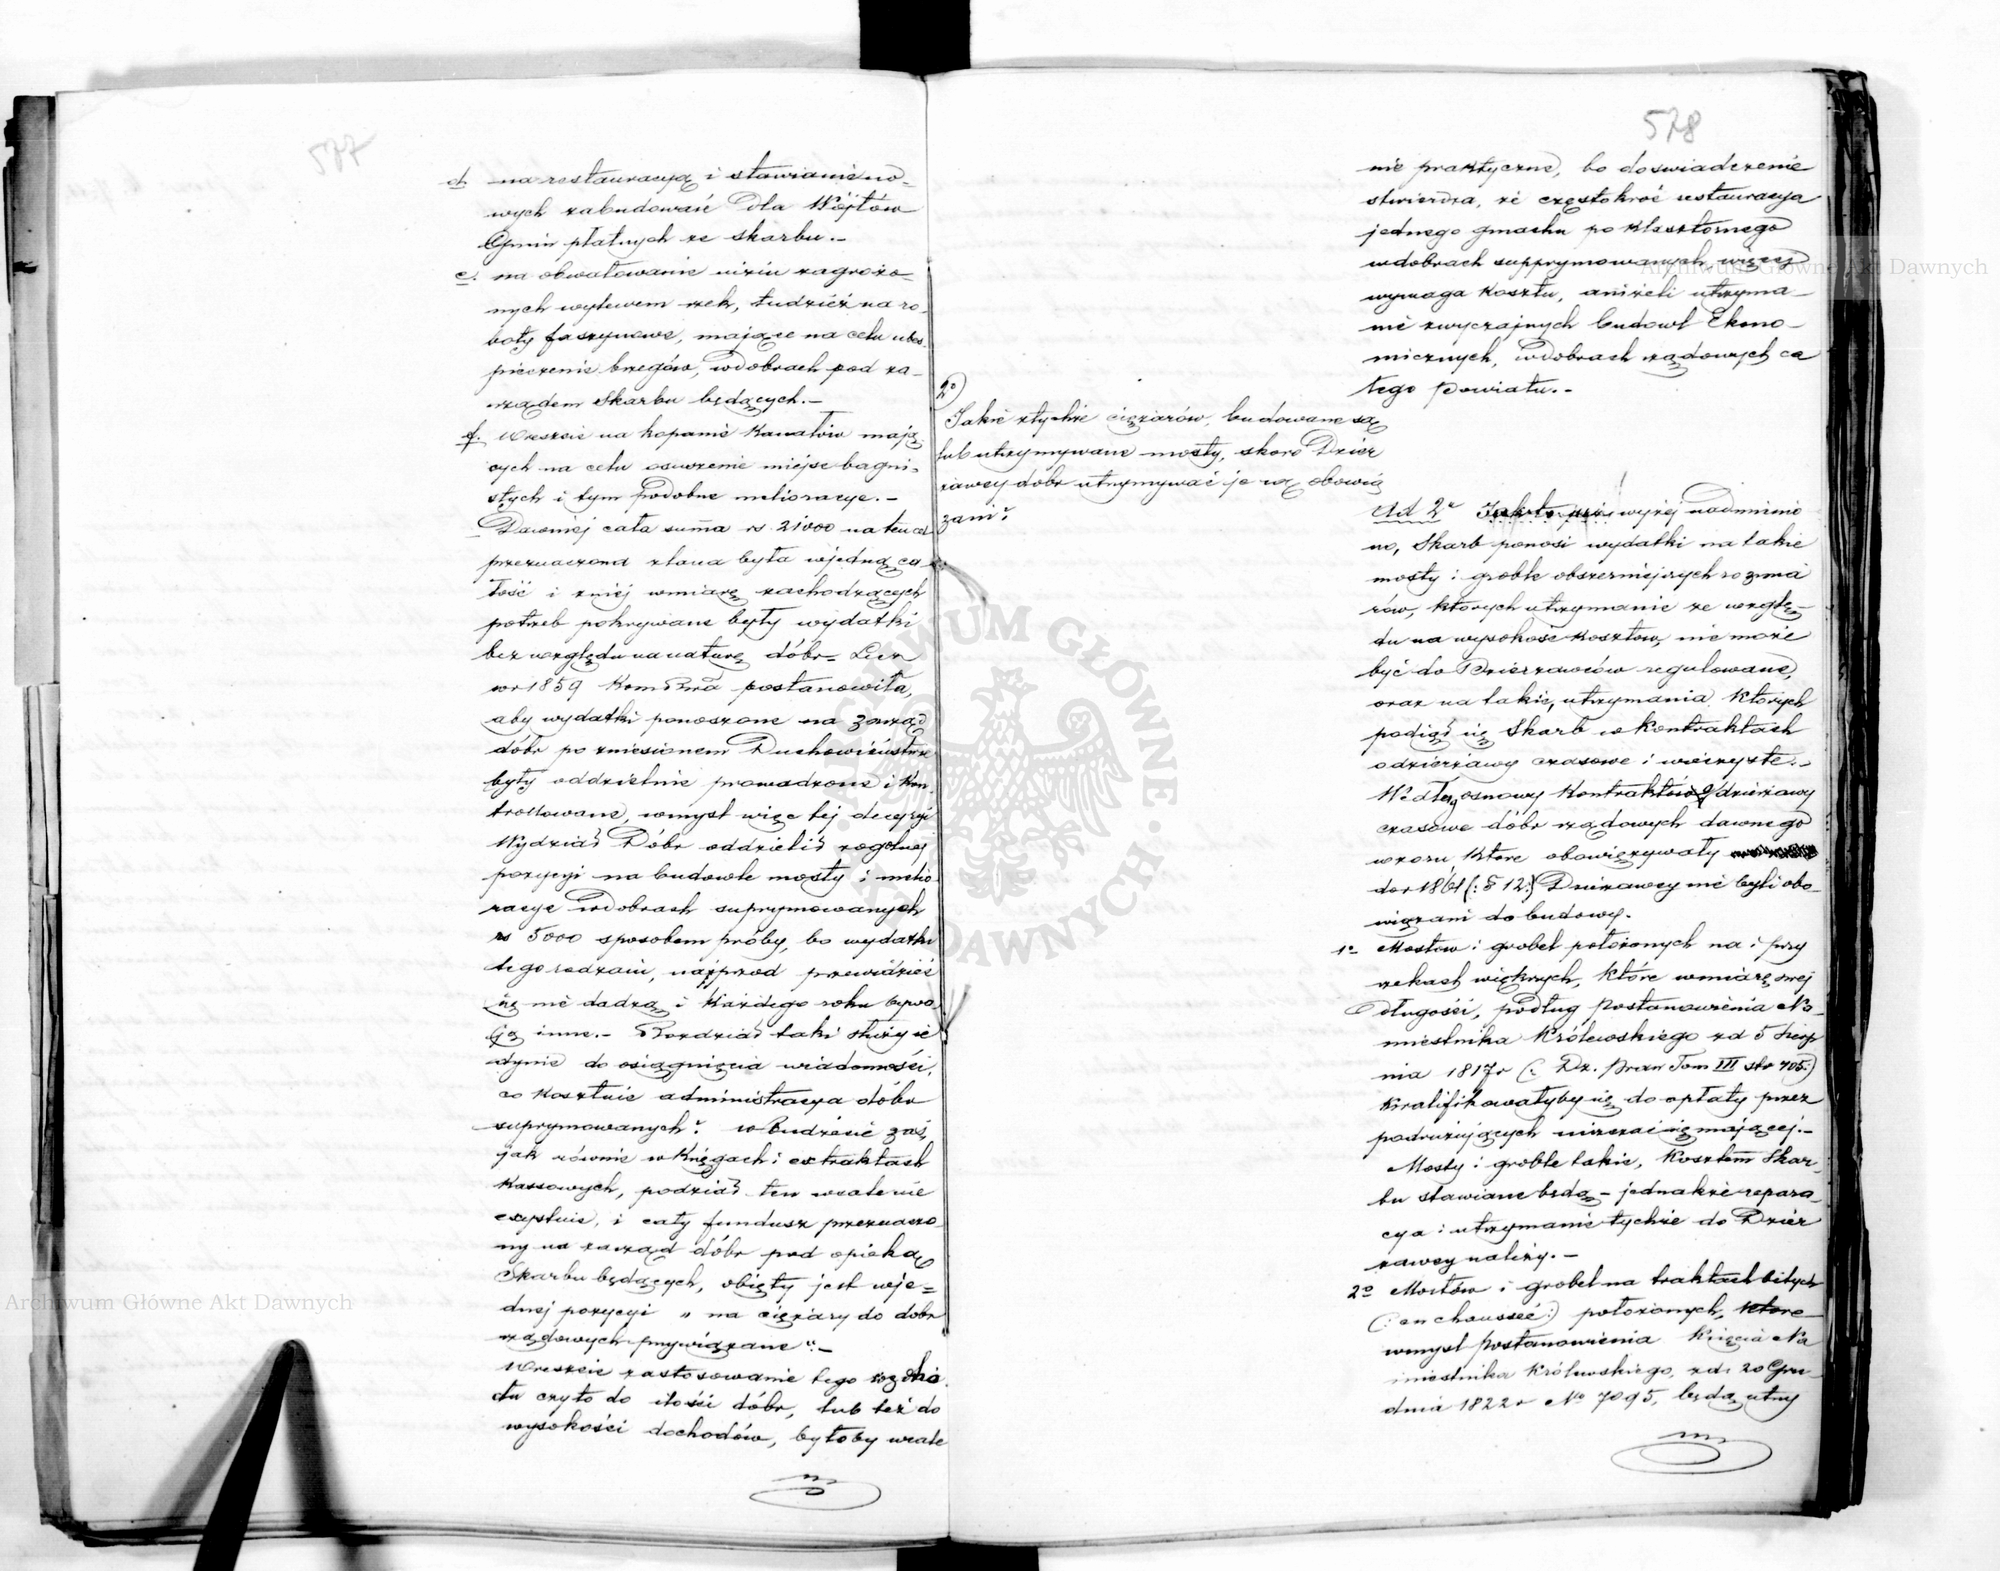 577
d. na restauracyą i stawianie no-
wych zabudowań dla Wójtów
Gmin płatnych ze skarbu.-
e. na obwałowanie nizin zagrożo-
nych wylewem rzek, tudzież na ro-
boty faszynowe, mające na celu ubez-
pieczenie brzegów, w dobrach pod za-
rządem Skarbu będących.-
f. Wreszcie na kopanie Kanałów mają-
cych na celu osuszenie miejsc bagni-
stych i tym podobne melioracye.-
Dawniej cała suma rs 21000 na ten cel
przeznaczona zlana była w jedną ca-
łość i z niej w miarę zachodzących
potrzeb pokrywane były wydatki
bez względu na naturę dóbr- Lecz
w r 1859 postanowiła,
aby wydatki ponoszone na zarząd
dóbr po zniesionem Duchowieństwie
były oddzielnie prowadzone i kon-
trollowane, w myśl więc tej decyzyi
Wydział Dóbr oddzielił z ogólnej
pozycyi na budowle mosty i melio-
racye w dobrach suprymowanych
rs 5000 sposobem próby, bo wydatki
tego rodzaiu, naprzod przewidzieć
się nie dadzą i każdego roku bywa-
ją inne.- Rozdział taki służy ie
dynie do osiągnięcia wiadomości,
co kosztuie administracya dóbr
suprymowanych? w budżecie zaś,
jak równie w Księgach i extraktach
Kassowych, podział ten wcale nie
exystuie, i cały fundusz przeznaczo-
ny na zarząd dóbr pod opieką
Skarbu będących, obięty jest w je-
dnej pozycyi „ na ciężary do dóbr
rządowych przywiązane“.-
Wreszcie zastosowanie tego rozdzia-
łu czyto do ilości dóbr, lub też do
wysokości dochodów, byłoby wcale
578
nie praktyczne, bo doswiadczenie
stwierdza, że częstokroć restauracya
jednego gmachu po klasztornego
w dobrach supprymowanych, więcej
wymaga kosztu, aniżeli utrzyma-
nie zwyczajnych budowl Ekono-
micznych, w dobrach rządowych ca
łego powiatu.-
2o)
Jakie z tychże ciężarów, budowane są
lub utrzymywane mosty, skoro Dzier
żawcy dóbr utrzymywać je są obowią
zani?
Ad 2o wyżej nadmienio
no, Skarb ponosi wydatki na takie
mosty i groble obszerniejszych rozmia
rów, których utrzymanie ze wzglę-
du na wysokość kosztów, nie może
być do Dzierzawców regulowane,
oraz na takie, utrzymania których
podiął się Skarb w kontraktach
odzierżawy czasowe i wieczyste.-
Według osnowy Kontraktów dzierżawy
czasowe dóbr rządowych dawnego
wzoru, które obowiązywały
do r 1861 (: § 12:) Dzierżawcy nie byli obo-
wiązani do budowy.
1o Mostów i grobel położonych na i przy
rzekach większych, które w miarę swej
długości, podług Postanowienia Na-
miestnika Królewskiego z d 5 Sierp
nia 1817 r (: Dz. Praw Tom III str 405:)
kwalifikowałyby się do opłaty przez
podróżujących uiszczać się mającej.-
Mosty i groble takie, kosztem Skar-
bu stawiane będą - jednakże repara-
cya i utrzymanie tychże do Dzier
zawcy należy.-
2o Mostów i grobel na traktach bitych
(: en chaussée:) położonych, które
w myśl Postanowienia Księcia Na
miestnika Królewskiego, z d. 20 Gru-
dnia 1822 r No 7095, będą utrzy
ARCHIWUM GŁÓWNE AKT DAWNYCH
Archiwum Główne Akt Dawnych
Archiwum Główne Akt Dawnych